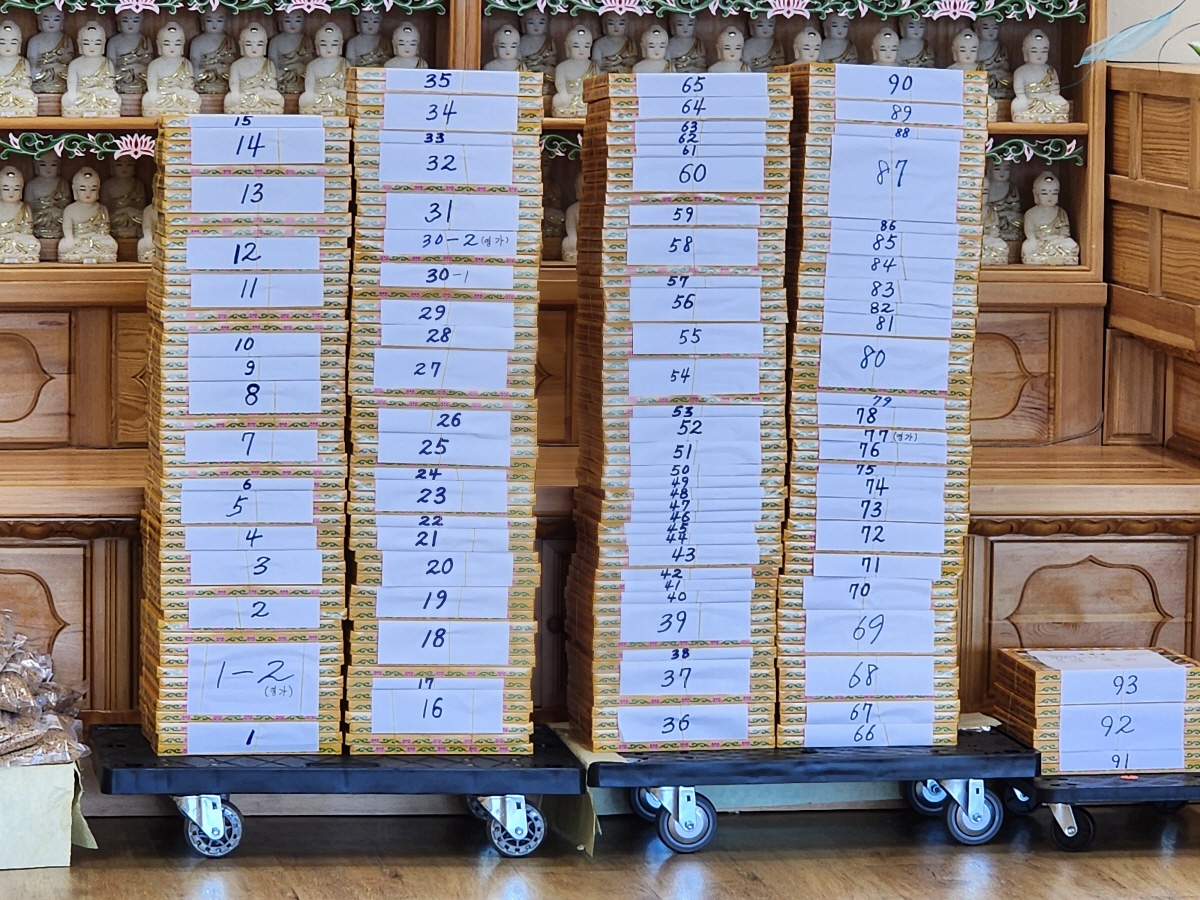 15
14
13
12
11
10
9
8
7
6
5
4
3
2
1-2
(영가)
1
35
34
33
32
31
30-2 (영가)
30-1
29
28
27
26
25
24
23
22
21
20
19
18
17
16
65
64
63
62
61
60
59
58
57
56
55
54
53
52
51
50
49
48
47
46
45
44
43
42
41
40
39
38
37
36
90
89
88
87
86
85
84
83
82
81
80
79
78
77 (영가)
76
75
74
73
72
71
70
69
68
67
66
93
92
91